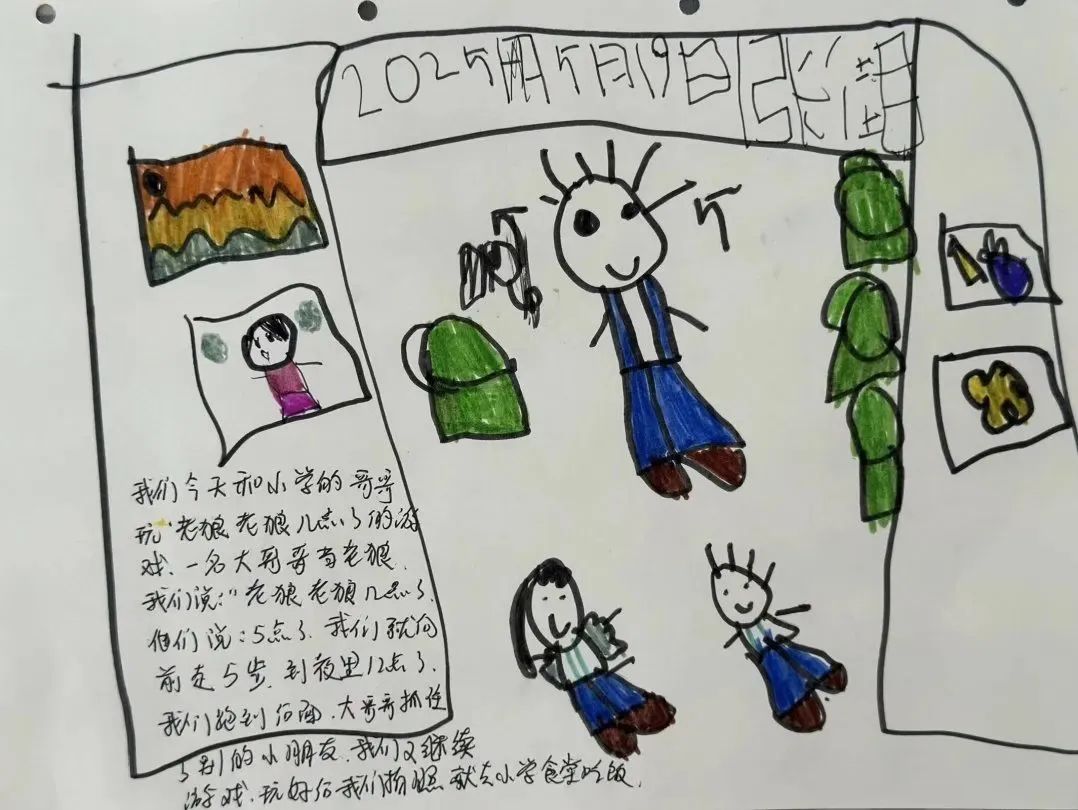 2025年5月19日 张
5
我们今天和小学的哥哥
玩“老狼老狼几点了的游
戏、一名大哥哥当老狼.
我们说:“老狼老狼几点了.
他们说:5点了.我们就向
前走5步.到夜里12点了.
我们跑到后面.大哥哥抓住
了别的小朋友.我们又继续
游戏.玩好后我们拍照就去小学食堂吃饭.